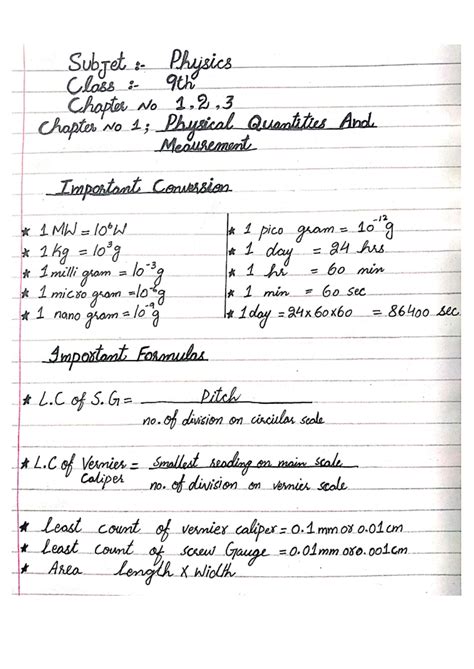 Subjet :- Physics
Class :- 9th
Chapter No 1, 2, 3
Chapter No 1; Physical Quantities And
Meaurement
Important Conversion
* 1 MW = 10⁶W
* 1 Kg = 10³g
* 1 milli gram = 10⁻³g
* 1 micro gram = 10⁻⁶g
* 1 nano gram = 10⁻⁹g
* 1 pico gram = 10⁻¹²g
* 1 day = 24 hrs
* 1 hr = 60 min
* 1 min = 60 sec
* 1 day = 24x60x60 = 86400 sec
Important Formulas
* L.C of S.G = Pitch
no. of division on circular scale
* L.C of Vernier Caliper = Smallest reading on main scale
no. of division on vernier scale
* least count of vernier caliper = 0.1mm or 0.01cm
* least count of screw Gauge = 0.01mm or 0.001cm
* Area length x width